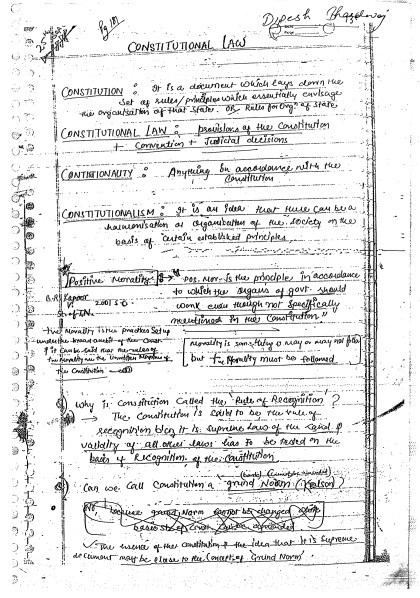 Pg 101
Dipesh Bhardwaj
CONSTITUTIONAL LAW
CONSTITUTION : It is a document which lays down the
set of rules/principles which essentially envisage
the organisation of that state. OR Rules for Orgn of State
CONSTITUTIONAL LAW : provisions of the Constitution
+ Convention + Judicial decisions
: Anything in accordance with the
Constitution
CONSTITUTIONALISM : It is an idea that there can be a
harmonisation or organisation of the society on the
basis of certain established principles.
Positive Morality : Pos. Mor. is the principle in accordance
to which the organs of govt. should
work even though not specifically
mentioned in the Constitution"
B.R. Kapoor
v 2001 SC
St of T.N.
+ve Morality is the practices set up
under the broad ambit of the Const.
it can be said
the Constitution
morality is something u may or may not follow
but +ve Morality must be followed
Q) Why is Constitution Called the 'Rule of Recognition' ?
→ The Constitution is said to be the rule of
recognition bcoz it is supreme law of the land &
validity of all other laws has to be tested on the
basis of Recognition, of the Constitution
Q) Can we call Constitution a 'grund Norm' (Kelson)
No, because grund Norm cannot be changed
basic str of const can be amended
- The essence of the constitution & the idea that it is supreme
document may be close to the Concept of 'Grund Norm'.